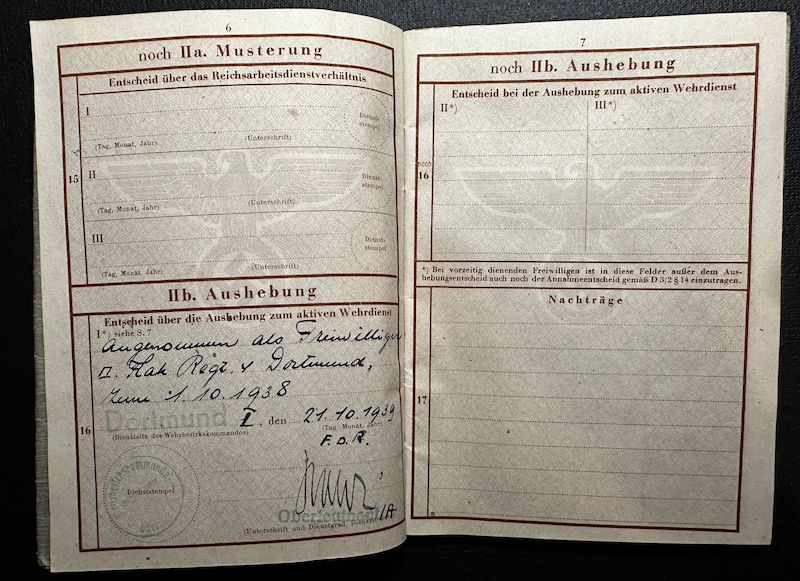 6
noch IIa. Musterung
Entscheid über das Reichsarbeitsdienstverhältnis
15
I
Dienst-
stempel
(Tag, Monat, Jahr) (Unterschrift)
II
Dienst-
stempel
(Tag, Monat, Jahr) (Unterschrift)
III
Dienst-
stempel
(Tag, Monat, Jahr) (Unterschrift)
IIb. Aushebung
Entscheid über die Aushebung zum aktiven Wehrdienst
I*) siehe S. 7
Angenommen als Freiwilliger
Flak Regt. 4 Dortmund,
zum 1.10.1938
16
Dortmund I, den 21.10.1939
(Dienstsitz des Wehrbezirkskommandos) (Tag, Monat, Jahr)
F.d.R.
Dienststempel
Oberleutnant
(Unterschrift und Dienstgrad,
7
noch IIb. Aushebung
Entscheid bei der Aushebung zum aktiven Wehrdienst
II*) III*)
noch
16
*) Bei vorzeitig dienenden Freiwilligen ist in diese Felder außer dem Aus-
hebungsentscheid auch noch der Annahmeentscheid gemäß D 3/2 § 14 einzutragen.
Nachträge
17